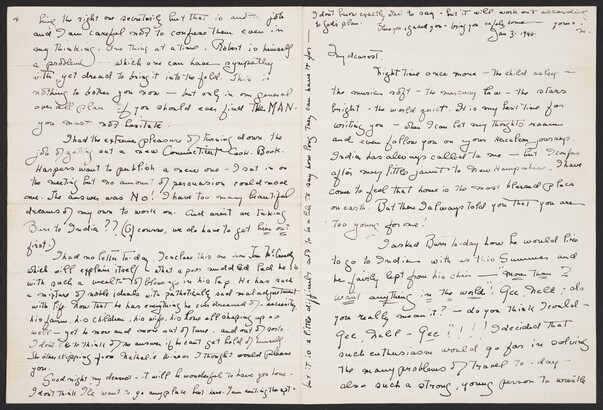 I don't know exactly what to say - but it will work out according
to God's plan. God guard you - bring you safely home - yours -
Jan 3. 1946.
My dearest
Night time once more - the child asleep -
the music soft - the mercury low - the stars
bright - the world quiet. It is my best time for
writing you - when I can let my thoughts roam
and even follow you on your Herculean journeys.
India has always called to me - but I confess
after my little jaunt to New Hampshire, I have
come to feel that home is the most blessed place
on earth. But then I always told you that you are
too young for me!
I asked Burr to-day how he would like
to go to India - with us this Summer and
he fairly leapt from his chair - "more than I
want anything in the world". Gee Nell - do
you really mean it? - do you think I could -
Gee, Nell - Gee"!!!! I decided that
such enthusiasm would go far in solving
the many problems of travel to-day -
also such a strong, young person to wrestle
but it is a little difficult
to say how long they can have it for
being the right one secretarily but that is another job
and I am careful not to confuse them even in
my thinking. One thing at a time. Robert is himself
a problem - which one can have sympathy
with yet dread to bring into the fold. This is
nothing to bother you now - but only in our general
over all plan if you should ever find THE MAN
you must not hesitate.
I had the extreme pleasure of turning down the
job of getting out a new Connecticut Cook Book.
Harpers want to publish a new one - I sat in on
the meeting but no amount of persuasion could move
me. The answer was No! I have too many beautiful
dreams of my own to work on. And aren't we taking
Burr to India?? (Of course, we do have to get him out
first.)
I had no letter to-day. I enclose this one from
which will explain itself - what a poor muddled lad he is
with such a wealth of blessings in his lap. He has such
a mixture of noble ideals with pathetically sad maladjustment
with life. Now that he has everything he ever dreamed of - security,
his farm, his children, his wife, his horse all shaping up so
well - yet he more and more out of tune - and out of sorts
I don't like to think of the answer if he can't get hold of himself
The other clipping from Nathalie I thought would please
you.
Good night my dearest - it will be wonderful to have you home -
I don't think I'll want to go any place but here. I am writing the apt.